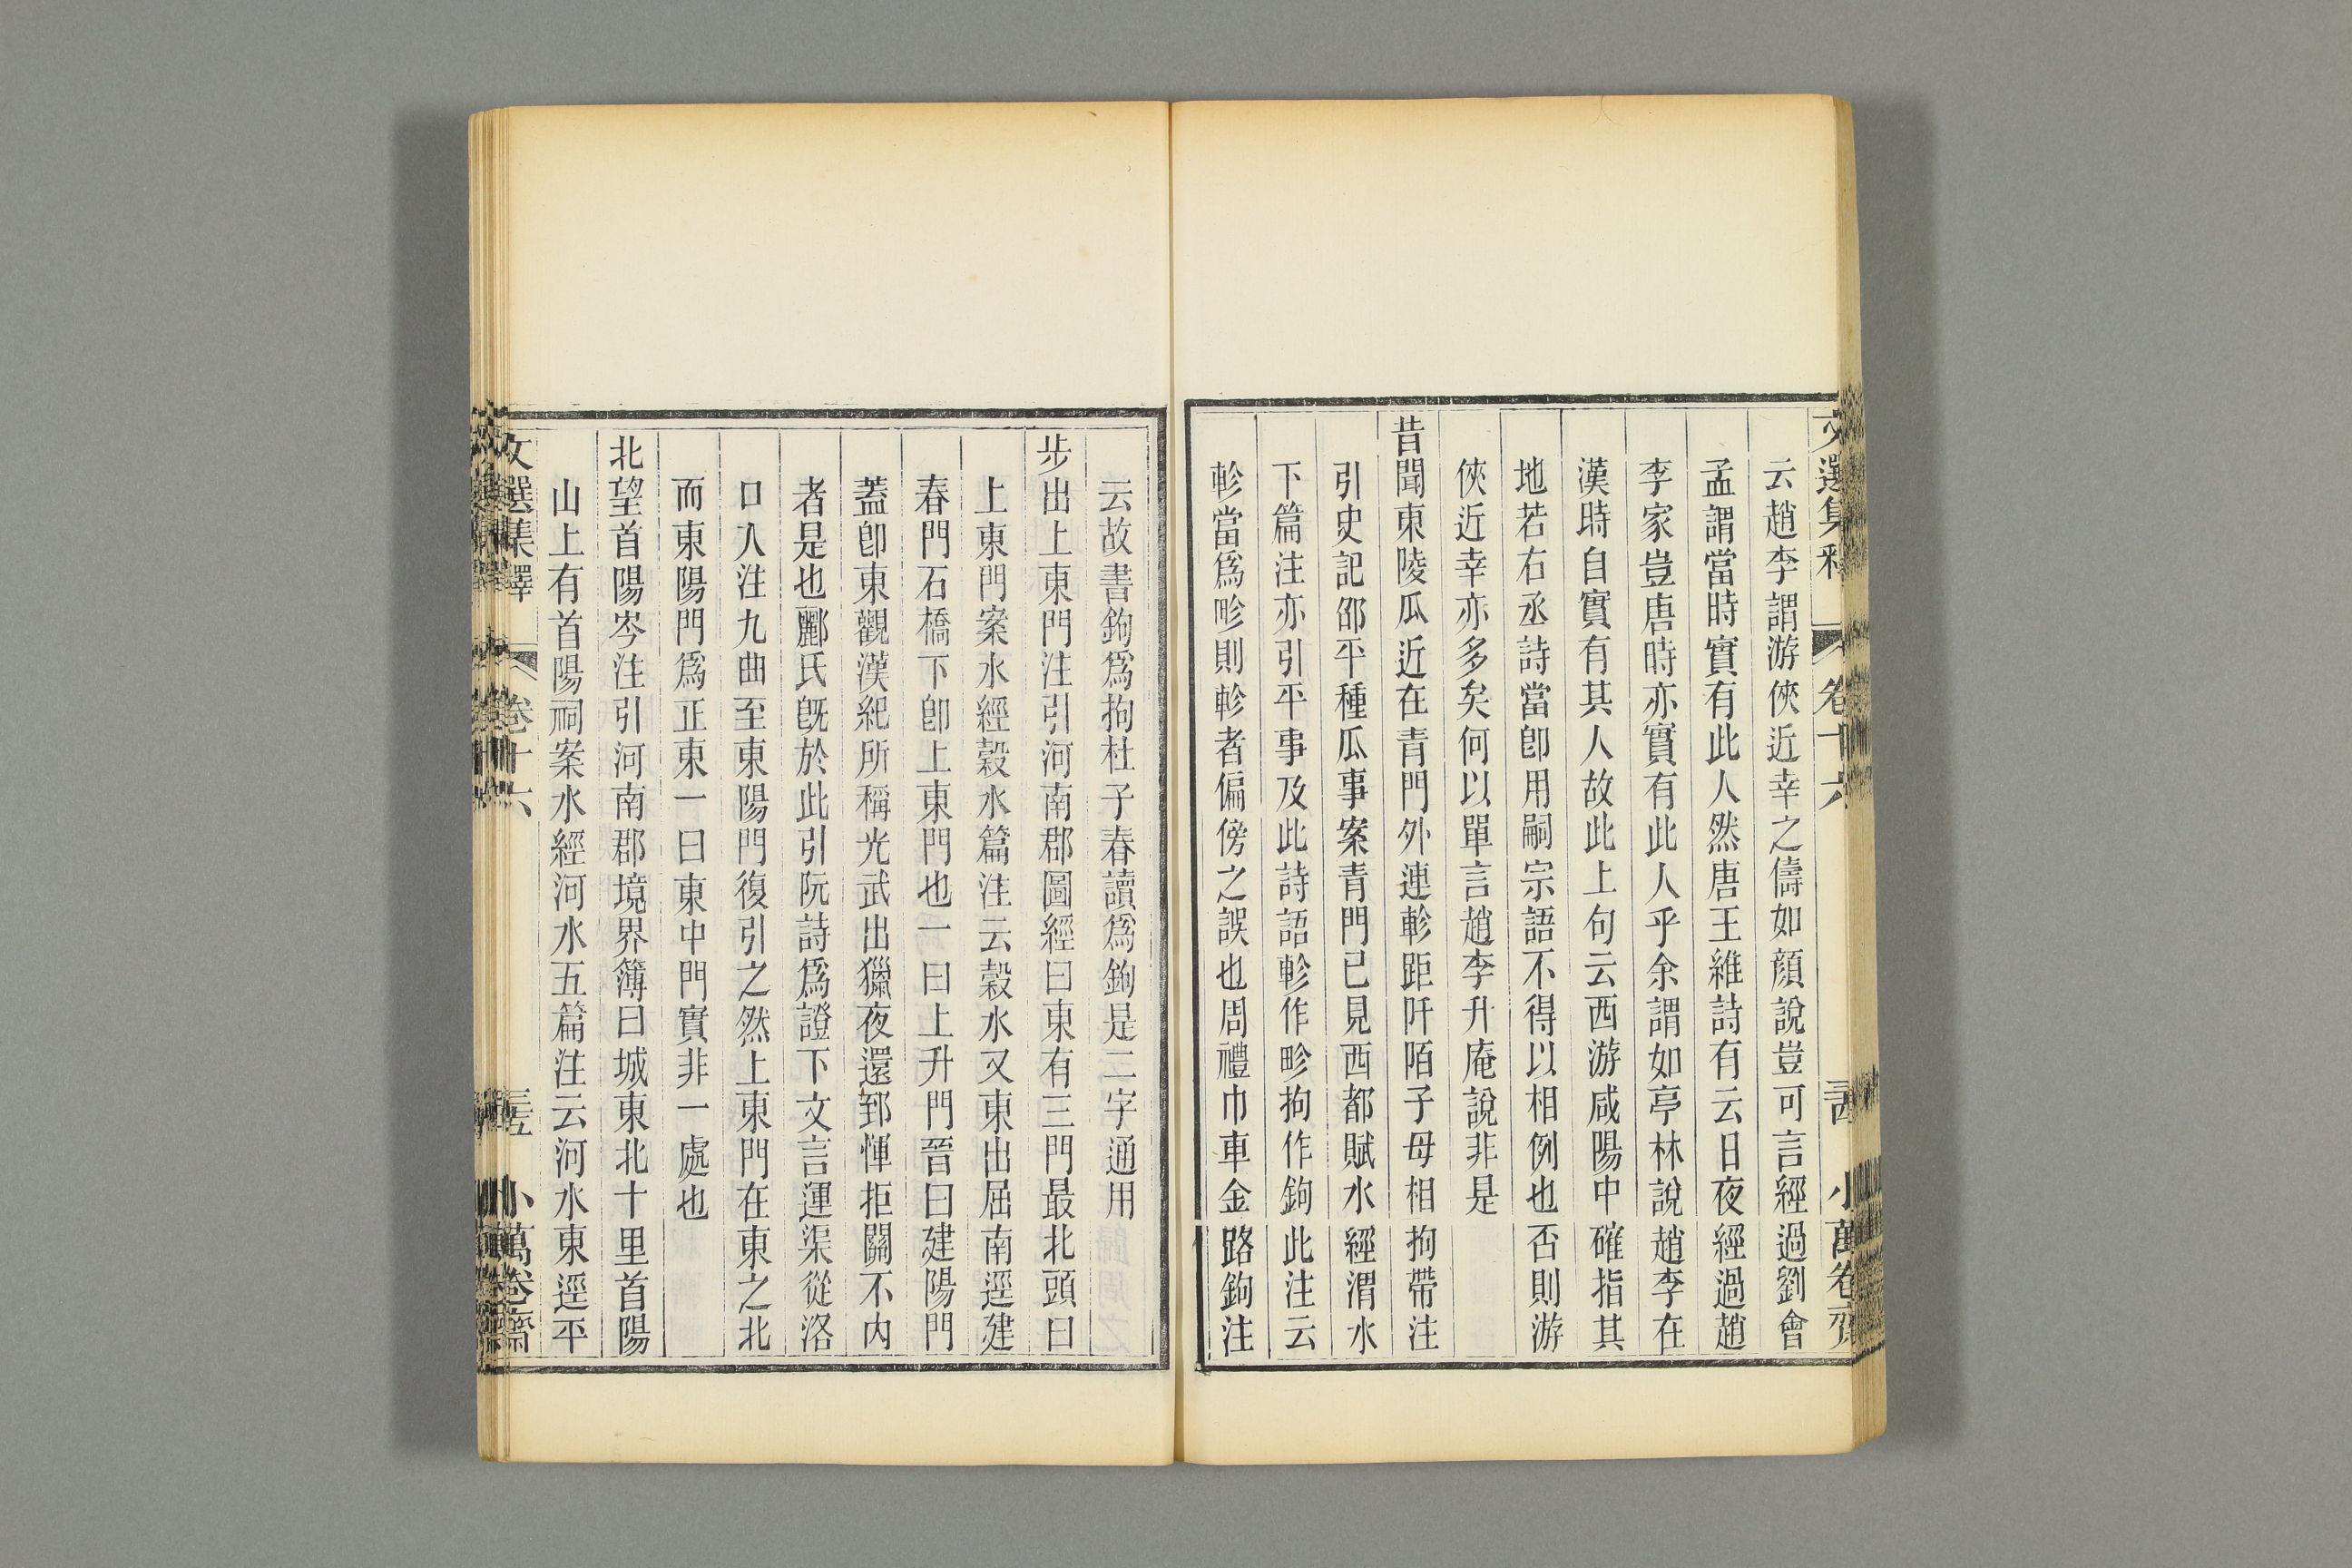 文選集釋 卷十六 小萬卷齋
云趙李謂游俠近幸之儔如顏說豈可言經過劉會
孟謂當時實有此人然唐王維詩有云日夜經過趙
李家豈唐時亦實有此人乎余謂如亭林說趙李在
漢時自實有其人故此上句云西游咸陽中確指其
地若右丞詩當卽用嗣宗語不得以相例也否則游
俠近幸亦多矣何以單言趙李升庵說非是
昔聞東陵瓜近在青門外連軫距阡陌子母相拘帶注
引史記邵平種瓜事案青門已見西都賦水經渭水
下篇注亦引平事及此詩語軫作畛拘作鉤此注云
軫當爲畛則軫者偏傍之誤也周禮巾車金路鉤注
云故書鉤爲拘杜子春讀爲鉤是二字通用
步出上東門注引河南郡圖經曰東有三門最北頭曰
上東門案水經穀水篇注云穀水又東出屈南逕建
春門石橋下卽上東門也一曰上升門晉曰建陽門
蓋卽東觀漢紀所稱光武出獵夜還郅惲拒關不內
者是也酈氏旣於此引阮詩爲證下文言運渠從洛
口入注九曲至東陽門復引之然上東門在東之北
而東陽門爲正東一曰東中門實非一處也
北望首陽岑注引河南郡境界簿曰城東北十里首陽
山上有首陽祠案水經河水五篇注云河水東逕平
文選集釋 卷十六 小萬卷齋